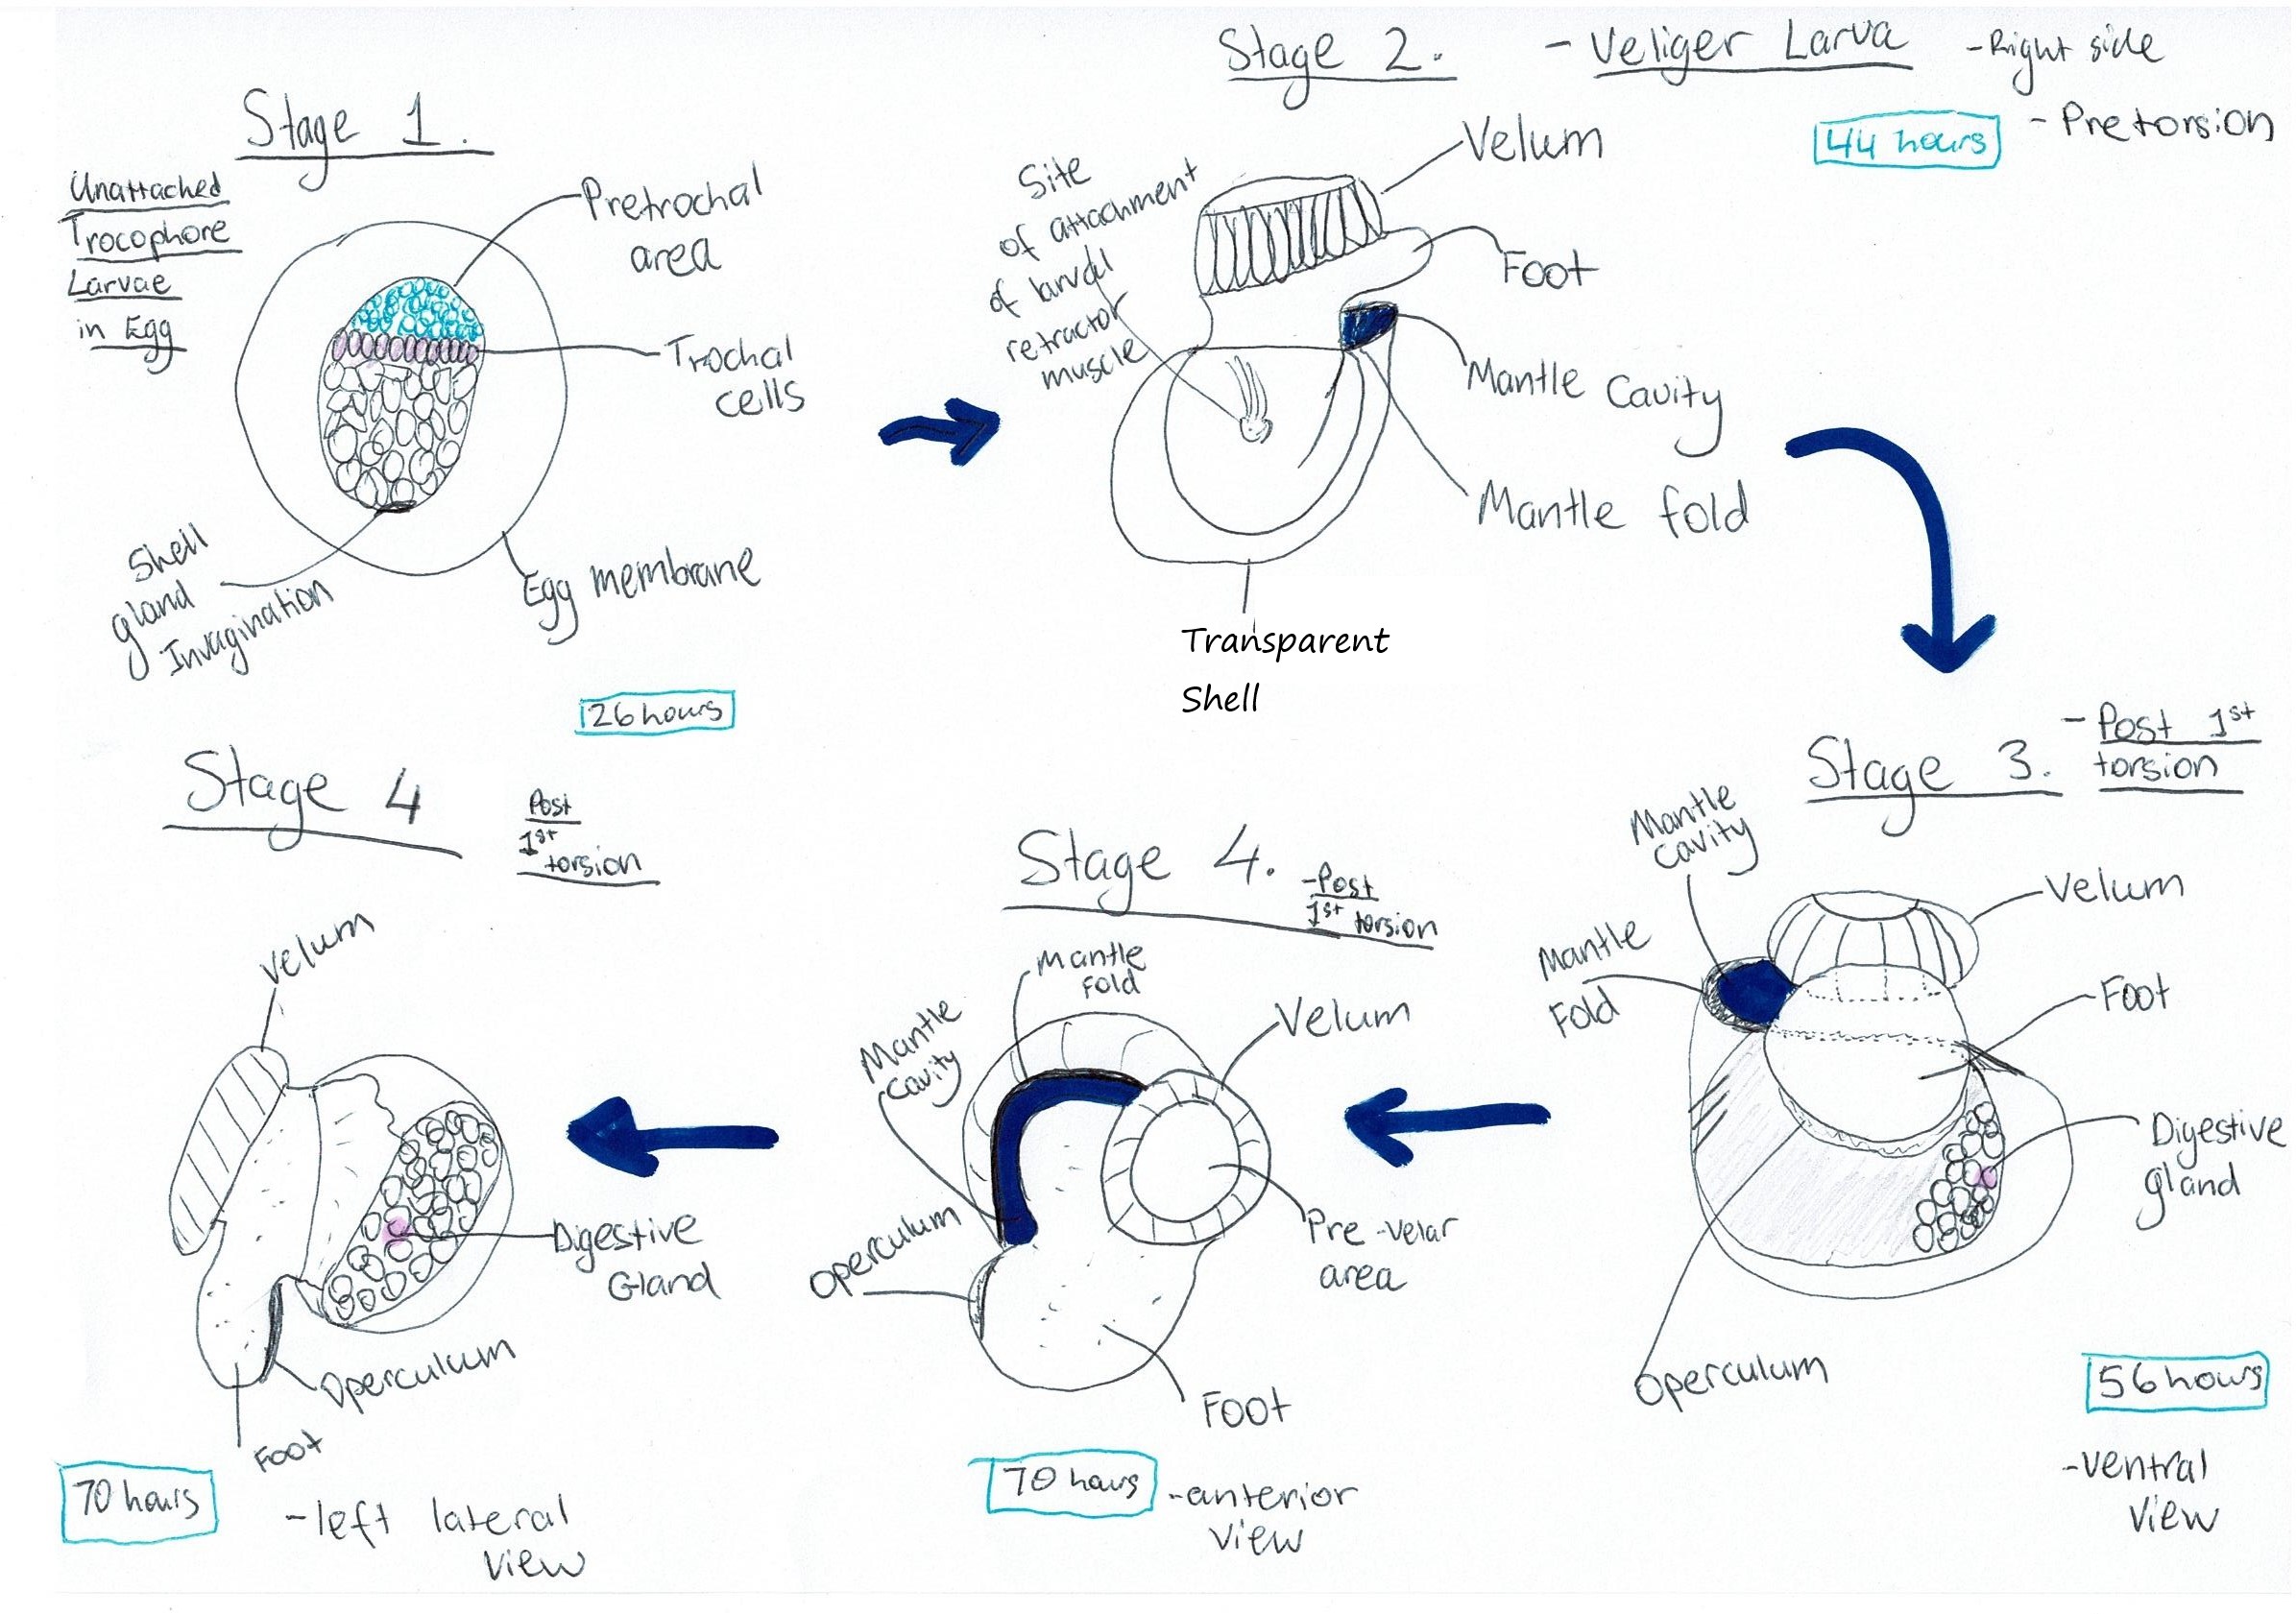 Stage 1.
Unattached
Trocophore
Larvae
in Egg
Pretrochal
area
Trochal
cells
Egg membrane
Shell
gland
Invagination
26 hours
Stage 2. - Veliger Larva - Right side
44 hours - Pretorsion
Site
of attachment
of larval
retractor
muscle
Velum
Foot
Mantle Cavity
Mantle fold
Transparent
Shell
Stage 3. - Post 1st
torsion
Mantle
cavity
Mantle
Fold
Velum
Foot
Digestive
gland
Operculum
56 hours
-ventral
view
Stage 4. -Post
1st torsion
Mantle
Fold
Mantle
cavity
Velum
Operculum
Pre-velar
area
Foot
70 hours -anterior
view
Stage 4 Post
1st
torsion
Velum
Digestive
Gland
Operculum
Foot
70 hours -left lateral
view